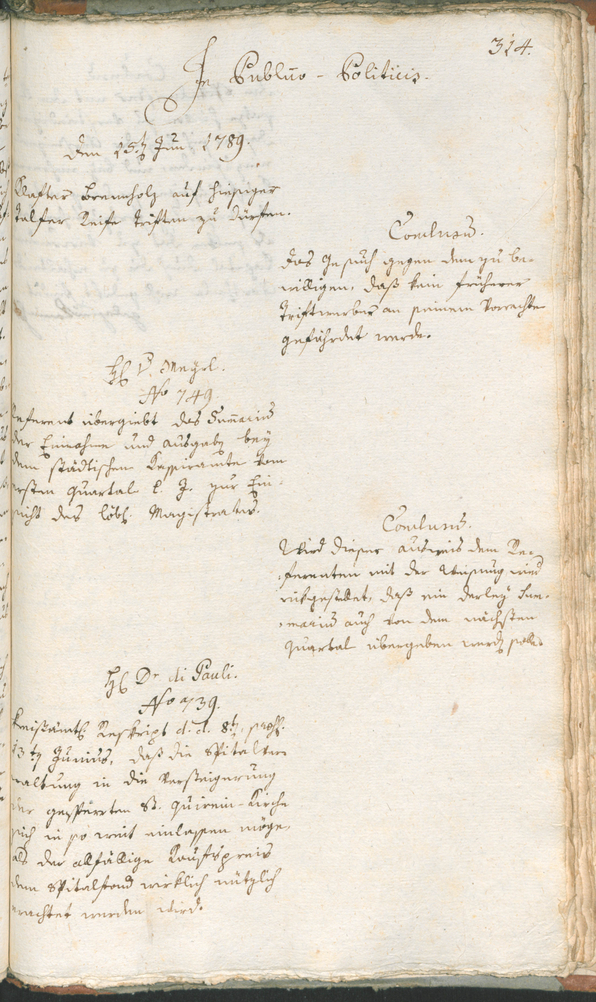 314.
In Publico-Politicis.
den 15t Juni 1789.
Klafter Brennholz auf hiesiger
Talfer Reife triften zu dürfen.
Conclusum.
das Gesuch gegen dem zu be-
willigen, daß kein früherer
Triftwerber an seinem Vorrechte
gefährdet werde.
H V. Menzl.
No 749
Referent übergiebt das Sum̄arius
der Einnahme und Ausgab bey
dem städtischen Kassieramte vom
ersten Quartal l. J. zur Ein-
sicht des löbl. Magistrates.
Conclusum.
Wird dieser Ausweis dem Re-
ferenten mit der Weisung wied
rükgestellet, daß ein derley Sum-
marius auch von dem nächsten
Quartal übergeben werde solle.
H Dr di Pauli.
No 739.
Kreisämtl Reskript d. d. 8t, praes.
13t Junius, daß die Spitalver
waltung in die Versteigerung
der gesperrten St. Quirein-Kirche
sich in so weit einlassen möge
als der allfällige Kaufspreis
dem Spitalfond wirklich nützlich
erachtet werden wird.